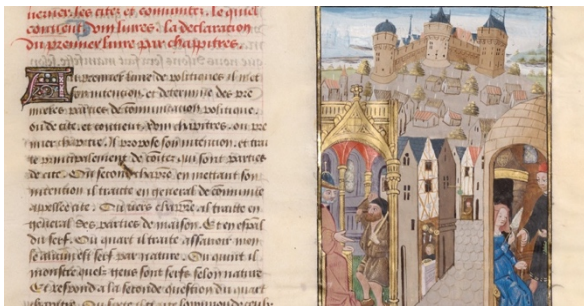 uerner les citez et comunitez. le quel
contient .viii. liures. la declaration
du premier liure par chappitres.
Au premier liure de politiques il met
son intention et determine des pre
mieres parties de communication politique.
ou de cite. et contient .xviii. chapitres. ou pre
mier chapitre. Il propose son intention. et trai
te principalement de choses qui sont parties
de cite. Ou second chapitre en mettant son
intention il traitte en general de communite
appellee cite. Ou tiers chapitre il traitte en
general des parties de maison. Et en especial
du serf. Ou quart il traite assauoir mon
se aucun est serf par nature. Ou quint il
monstre quelz gens sont serfs selon nature
Et respond a la seconde question du quart
chapitre. Ou